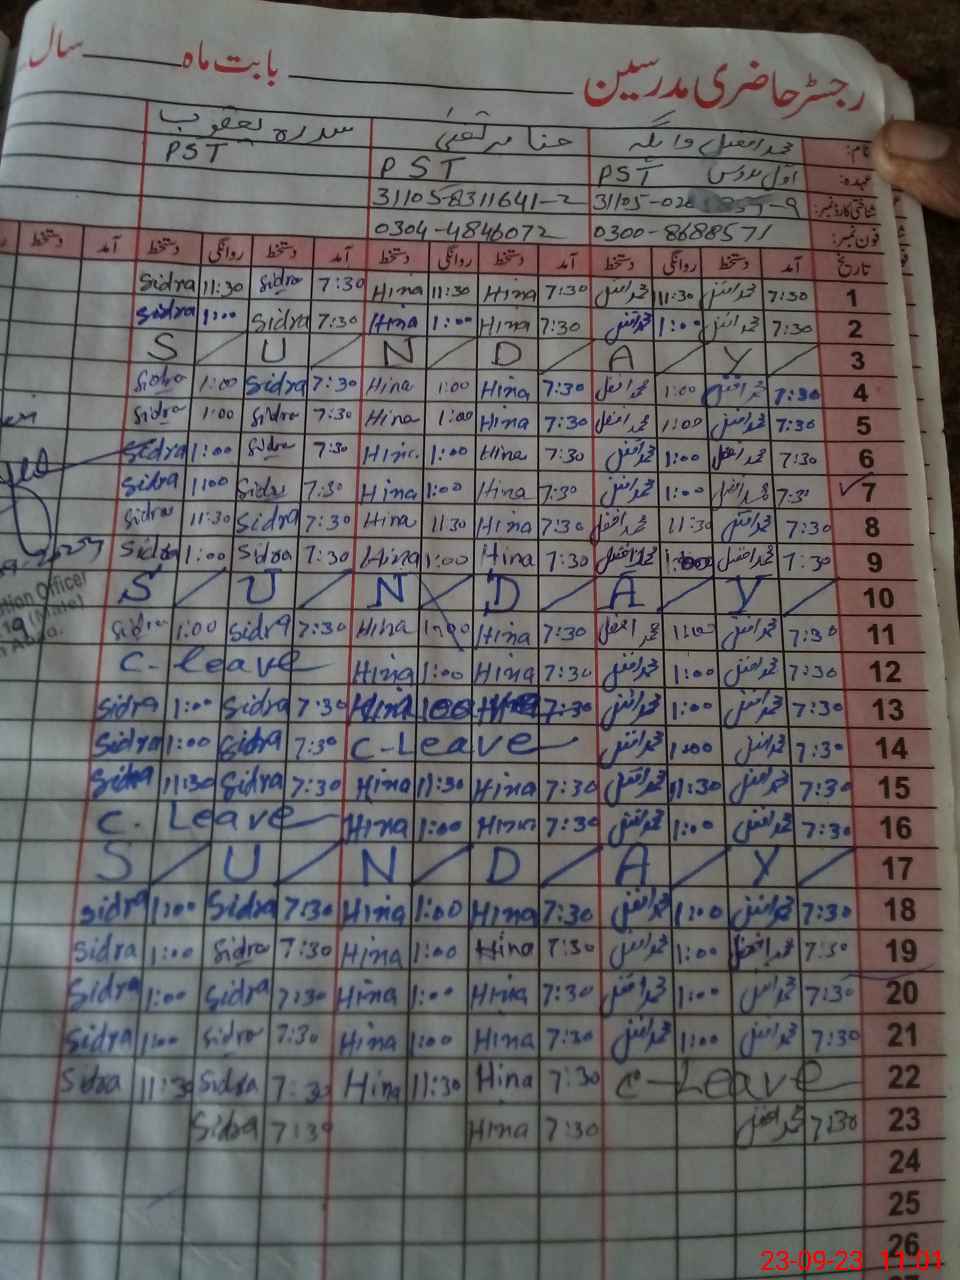 رجسٹر حاضری مدرسین ــــ بابت ماہ ــــ سال
نام: محمد افضل حنا مرتضیٰ سدرہ یعقوب
عہدہ: اول مدرس PST PST PST
شناختی کارڈ نمبر: 31105-8311641-2
فون نمبر: 0300-8688571 0304-4846072
تاریخ آمد دستخط روانگی دستخط آمد دستخط روانگی دستخط آمد دستخط روانگی دستخط آمد دستخط
1 7:30 محمد افضل 11:30 محمد افضل 7:30 Hina 11:30 Hina 7:30 Sidra 11:30 Sidra
2 7:30 محمد افضل 1:00 محمد افضل 7:30 Hina 1:00 Hina 7:30 Sidra 1:00 Sidra
3 S U N D A Y
4 7:30 محمد افضل 1:00 محمد افضل 7:30 Hina 1:00 Hina 7:30 Sidra 1:00 Sidra
5 7:30 محمد افضل 1:00 محمد افضل 7:30 Hina 1:00 Hina 7:30 Sidra 1:00 Sidra
6 7:30 محمد افضل 1:00 محمد افضل 7:30 Hina 1:00 Hina 7:30 Sidra 1:00 Sidra
7 7:30 محمد افضل 1:00 محمد افضل 7:30 Hina 1:00 Hina 7:30 Sidra 1:00 Sidra
8 7:30 محمد افضل 11:30 محمد افضل 7:30 Hina 11:30 Hina 7:30 Sidra 11:30 Sidra
9 7:30 محمد افضل 1:00 محمد افضل 7:30 Hina 1:00 Hina 7:30 Sidra 1:00 Sidra
10 S U N D A Y
11 7:30 محمد افضل 1:00 محمد افضل 7:30 Hina 1:00 Hina 7:30 Sidra 1:00 Sidra
12 7:30 محمد افضل 1:00 محمد افضل 7:30 Hina 1:00 Hina C. leave
13 7:30 محمد افضل 1:00 محمد افضل 7:30 Hina 1:00 Hina 7:30 Sidra 1:00 Sidra
14 7:30 محمد افضل 1:00 محمد افضل C-Leave 7:30 Sidra 1:00 Sidra
15 7:30 محمد افضل 11:30 محمد افضل 7:30 Hina 11:30 Hina 7:30 Sidra 11:30 Sidra
16 7:30 محمد افضل 1:00 محمد افضل 7:30 Hina 1:00 Hina C. Leave
17 S U N D A Y
18 7:30 محمد افضل 1:00 محمد افضل 7:30 Hina 1:00 Hina 7:30 Sidra 1:00 Sidra
19 7:30 محمد افضل 1:00 محمد افضل 7:30 Hina 1:00 Hina 7:30 Sidra 1:00 Sidra
20 7:30 محمد افضل 1:00 محمد افضل 7:30 Hina 1:00 Hina 7:30 Sidra 1:00 Sidra
21 7:30 محمد افضل 1:00 محمد افضل 7:30 Hina 1:00 Hina 7:30 Sidra 1:00 Sidra
22 C-Leave 7:30 Hina 11:30 Hina 7:30 Sidra 11:30 Sidra
23 7:30 محمد افضل 7:30 Hina 7:30 Sidra
24
25
26
Officer
(Male)
23-09-23 11:01